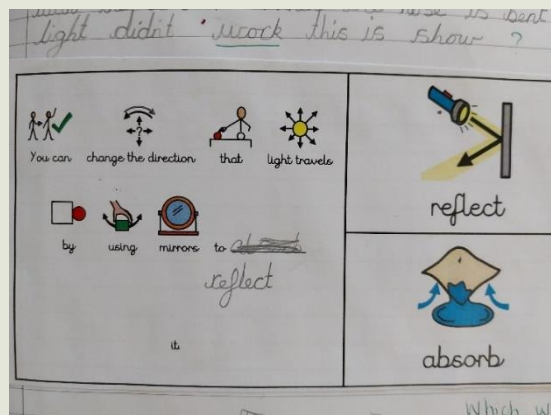 is bent
light didn't work this is show ?
You can change the direction that light travels
by using mirrors to
reflect
it.
reflect
absorb
Which w